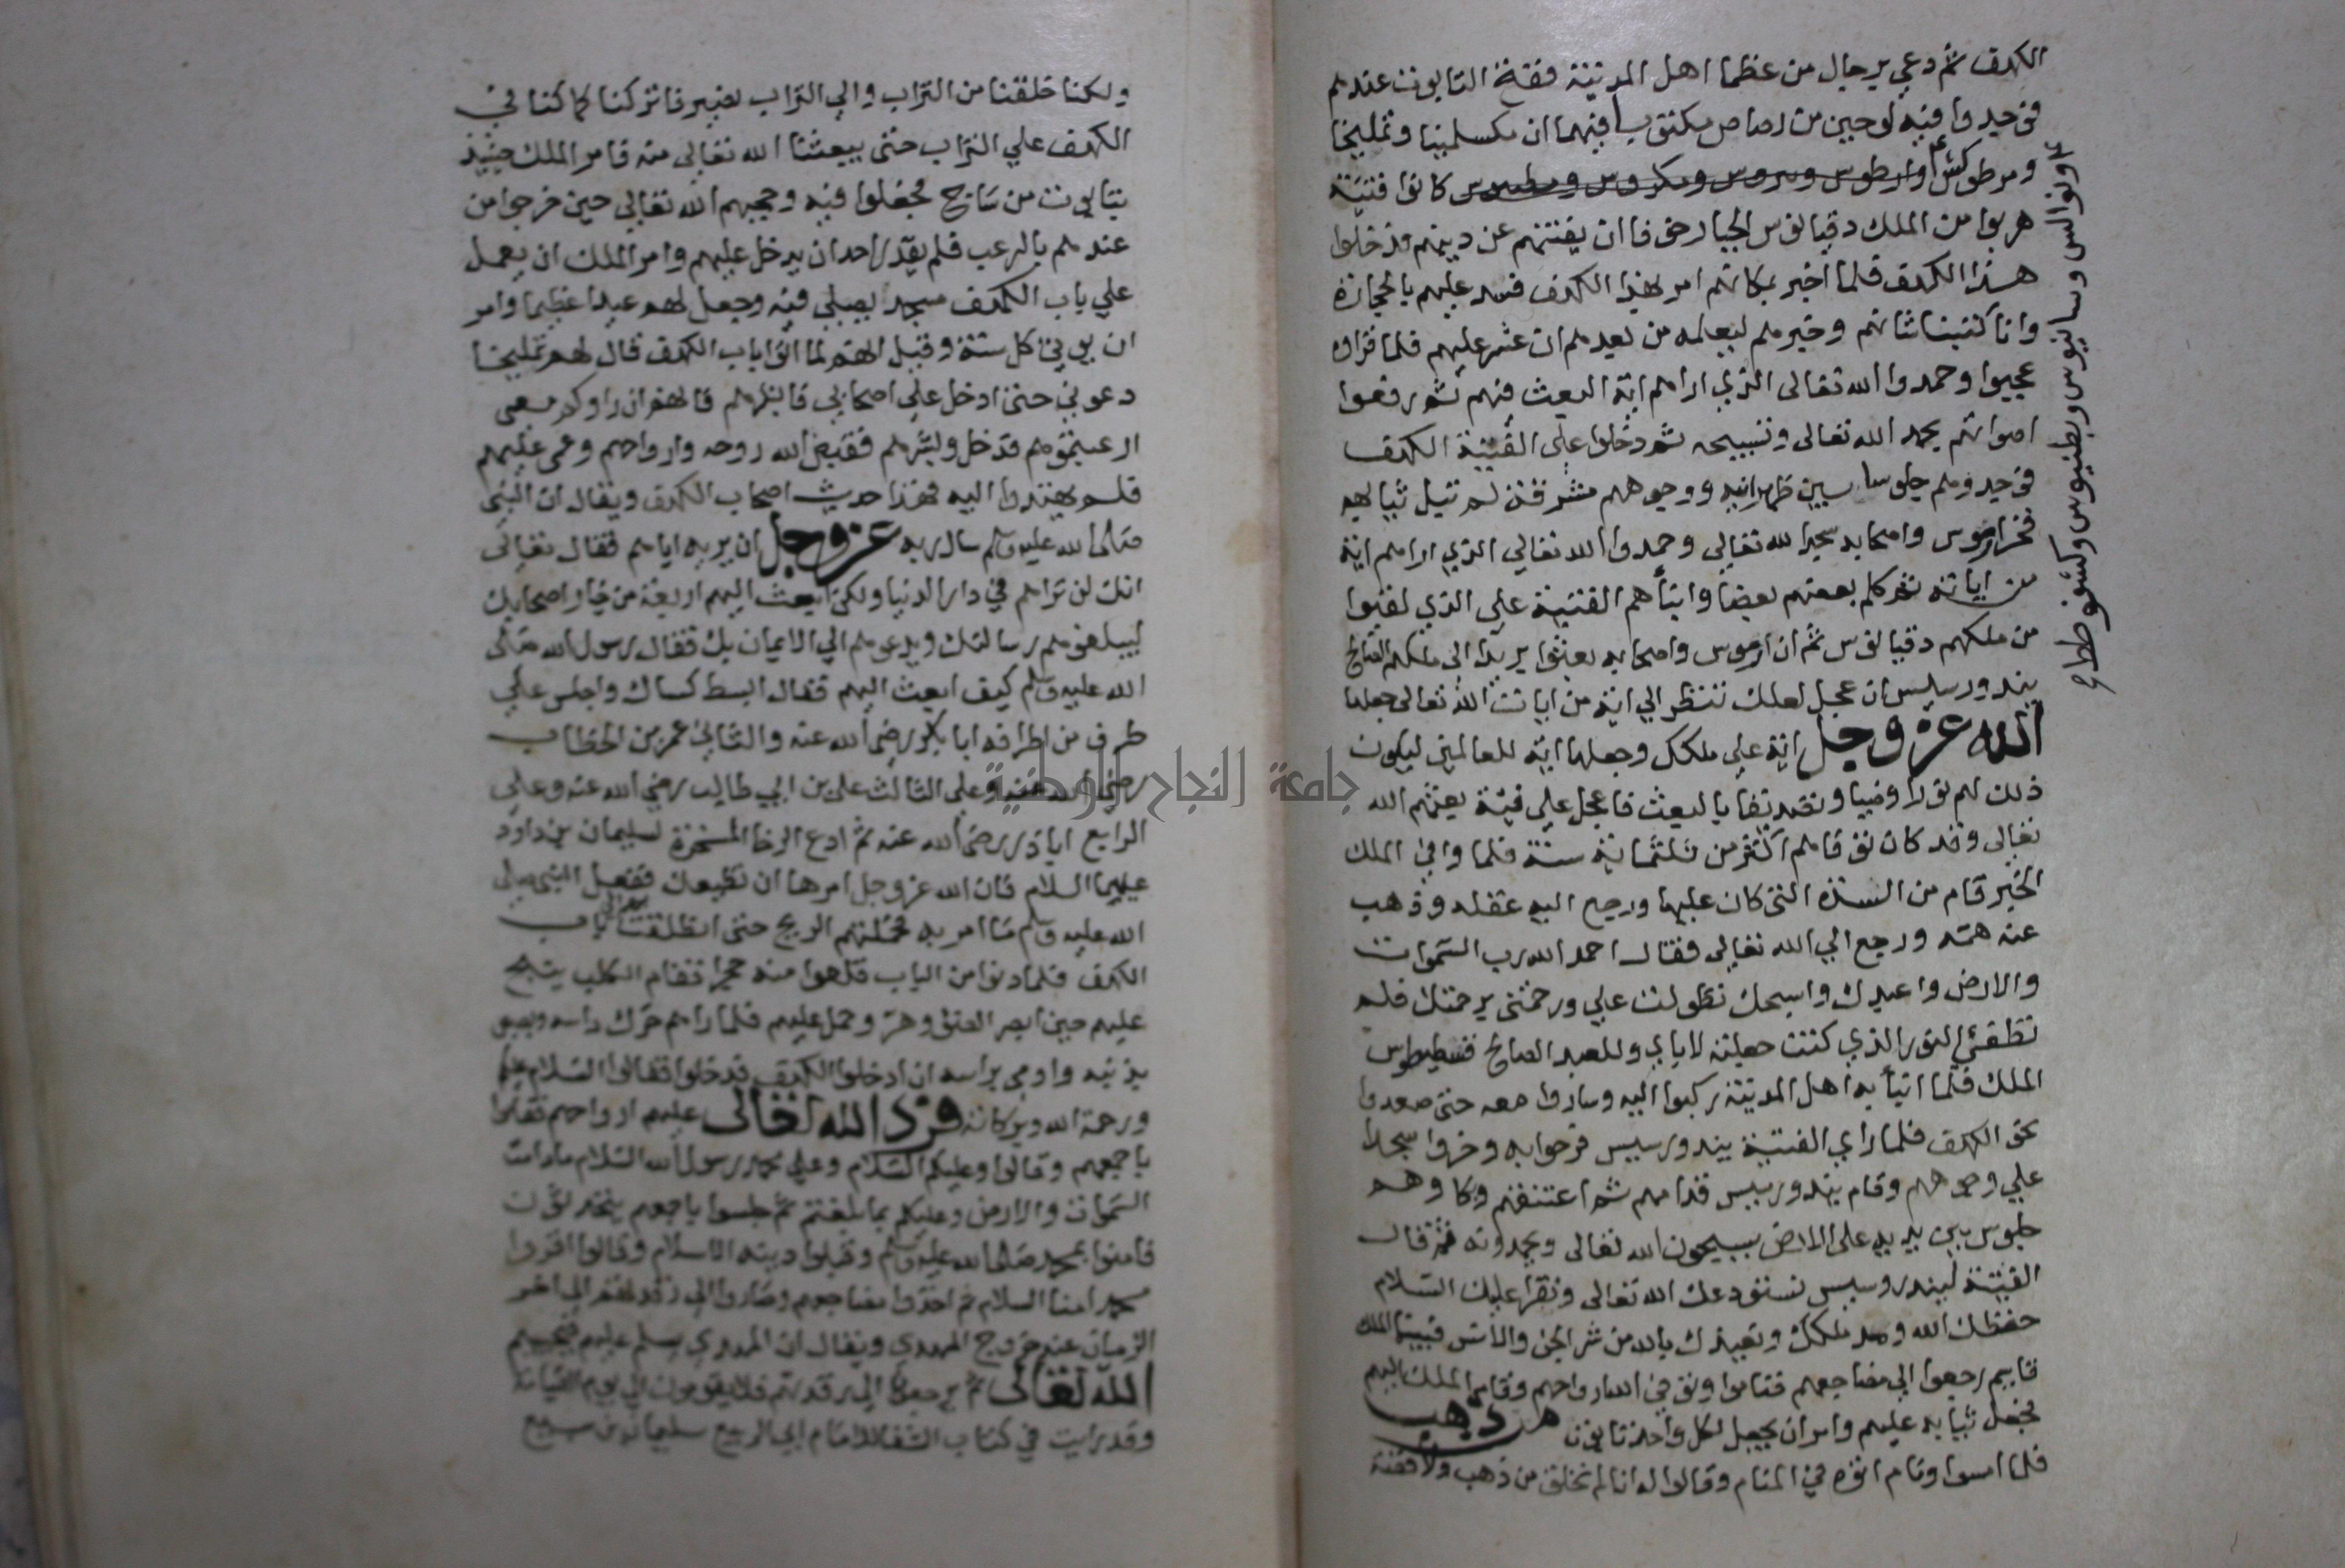 الكهف ثم دعي برجال من عظما اهل المدينة ففتح التابوت عندهم
فوجدوا فيه لوحين من رصاص مكتوبا فيهما ان مكسلمينا وتمليخا
ومرطوكش وارطوس وبيروس وبكروس وبطيوس كانوا فتية
هربوا من الملك دقيانوس الجبار خوفا ان يفتنهم عن دينهم فدخلوا
هذا الكهف فلما اخبر بمكانهم امر بهذا الكهف فسد عليهم بالحجارة
وانا كتبنا شانهم وخبرهم ليعلمه من بعدهم ان عثر عليهم فلما قراه
عجبوا وحمدوا الله تعالى الذي اراهم اية البعث فيهم ثم رفعوا
اصواتهم بحمد الله تعالى وتسبيحه ثم دخلوا على الفتية الكهف
فوجدوهم جلوسا بين ظهرانيه ووجوههم مشرقة لم تبل ثيابهم
فخر ارموس واصحابه سجدا لله تعالي وحمدوا الله تعالي الذي اراهم اية
من اياته ثم كلم بعضهم بعضا وانبأهم الفتية علي الذي لقيوا
من ملكهم دقيانوس ثم ان ارموس واصحابه بعثوا بريدا الى ملكهم الصالح
بيندورسيس ان عجل لعلك تنظر الي اية من ايات الله تعالى جعلها
الله عز وجل اية علي ملكك وجعلها اية للعالمين ليكون
ذلك لهم نورا وضيا وتصديقا بالبعث فاعجل علي فتية بعثهم الله
تعالى وقد كان توفاهم اكثر من ثلثماية سنة فلما واتي الملك
الخبر قام من السدة التي كان عليها ورجع اليه عقله وذهب
عنه همه ورجع الي الله تعالي فقال احمد الله رب السموات
والارض واعبدك واسبحك تطولت علي ورحمتني برحمتك فلم
تطفي النور الذي كنت جعلته لاباي وللعبد الصالح قسطيطوس
الملك فلما انبأ به اهل المدينة ركبوا اليه وساروا معه حتى صعدوا
نحو الكهف فلما راي الفتية بيندورسيس فرحوا به وخروا سجدا
علي وجوههم وقام بيندورسيس قدامهم ثم اعتنقهم وبكا وهم
جلوس بين يديه على الارض يسبحون الله تعالى ويحمدونه ثم قال
الفتية لبيندروسيس نستودعك الله تعالى ونقرأ عليك السلام
حفظك الله ومد ملكك ونعيذك بالله من شر الجن والانس فبينما الملك
قايم رجعوا الي مضاجعهم فناموا وتوفي الله ارواحهم وقام الملك اليهم
فجعل ثيابه عليهم وامر ان يجعل لكل واحد تابوت ذهب
فلما امسوا ونام اتوه في المنام وقالوا له انا لم نخلق من ذهب ولا فضة
ونوالس وسانيوس وبطنيوس وكشفوطط
ولكنا خلقنا من التراب والي التراب نصير فاتركنا كما كنا في
الكهف علي التراب حتى يبعثنا الله تعالى منه فامر الملك حينيذ
بتابوت من ساج فجعلوا فيه وحجبهم الله تعالي حين خرجوا من
عندهم بالرعب فلم يقدر احد ان يدخل عليهم وامر الملك ان يعمل
علي باب الكهف مسجد يصلي فيه وجعل لهم عيدا عظيما وامر
ان يوتي كل سنة وقيل انهم لما اتوا باب الكهف قال لهم تمليخا
دعوني حتى ادخل على اصحابي فابشرهم فانهم ان راوكم معي
ارعبتموهم فدخل وبشرهم فقبض الله روحه وارواحهم وعمى عليهم
فلم يهتدوا اليه فهذا حديث اصحاب الكهف ويقال ان النبي
صلى الله عليه وسلم سال ربه عز وجل ان يريه اياهم فقال تعالى
انك لن تراهم في دار الدنيا ولكن ابعث اليهم اربعة من خيار اصحابك
ليبلغوهم رسالتك ويدعوهم الي الايمان بك فقال رسول الله صلى
الله عليه وسلم كيف ابعث اليهم فقال ابسط كساك واجلس علي
طرف من اطرافه ابا بكر رضي الله عنه والثاني عمر بن الخطاب
رضي الله عنه وعلى الثالث علي بن ابي طالب رضي الله عنه وعلي
الرابع اباذر رضي الله عنه ثم ادع الرخا المسخرة لسليمان بن داود
عليهما السلام فان الله عز وجل امرها ان تطيعك ففعل النبي صلى
الله عليه وسلم ما امر به فحملتهم الريح حتى انطلقت بهم الي باب
الكهف فلما دنوا من الباب قلعوا منه حجرا فقام الكلب ينبح
عليهم حين ابصر الضؤ وهر وحمل عليهم فلما راهم حرك راسه وبصبص
بذنبه واومي براسه ان ادخلوا الكهف فدخلوا فقالوا السلام عليكم
ورحمة الله وبركاته فرد الله تعالى عليهم ارواحهم فقاموا
باجمعهم وقالوا وعليكم السلام وعلي محمد رسول الله السلام مادامت
السموات والارض وعليكم بما بلغتم ثم جلسوا باجمعهم يتحدثون
فامنوا بمحمد صلى الله عليه وسلم وقبلوا دينه الاسلام وقالوا اقروا
محمد امنا السلام ثم اخذوا مضاجعهم وصاروا الي رقدتهم الى اخر
الزمان عند خروج المهدي ويقال ان المهدي يسلم عليهم فيحييهم
الله تعالى ثم يرجعون الي رقدتهم فلا يقومون الي يوم القيامة
وقد رايت في كتاب الشفا للامام ابي الربيع سليمان بن سبع
جامعة النجاح الوطنية